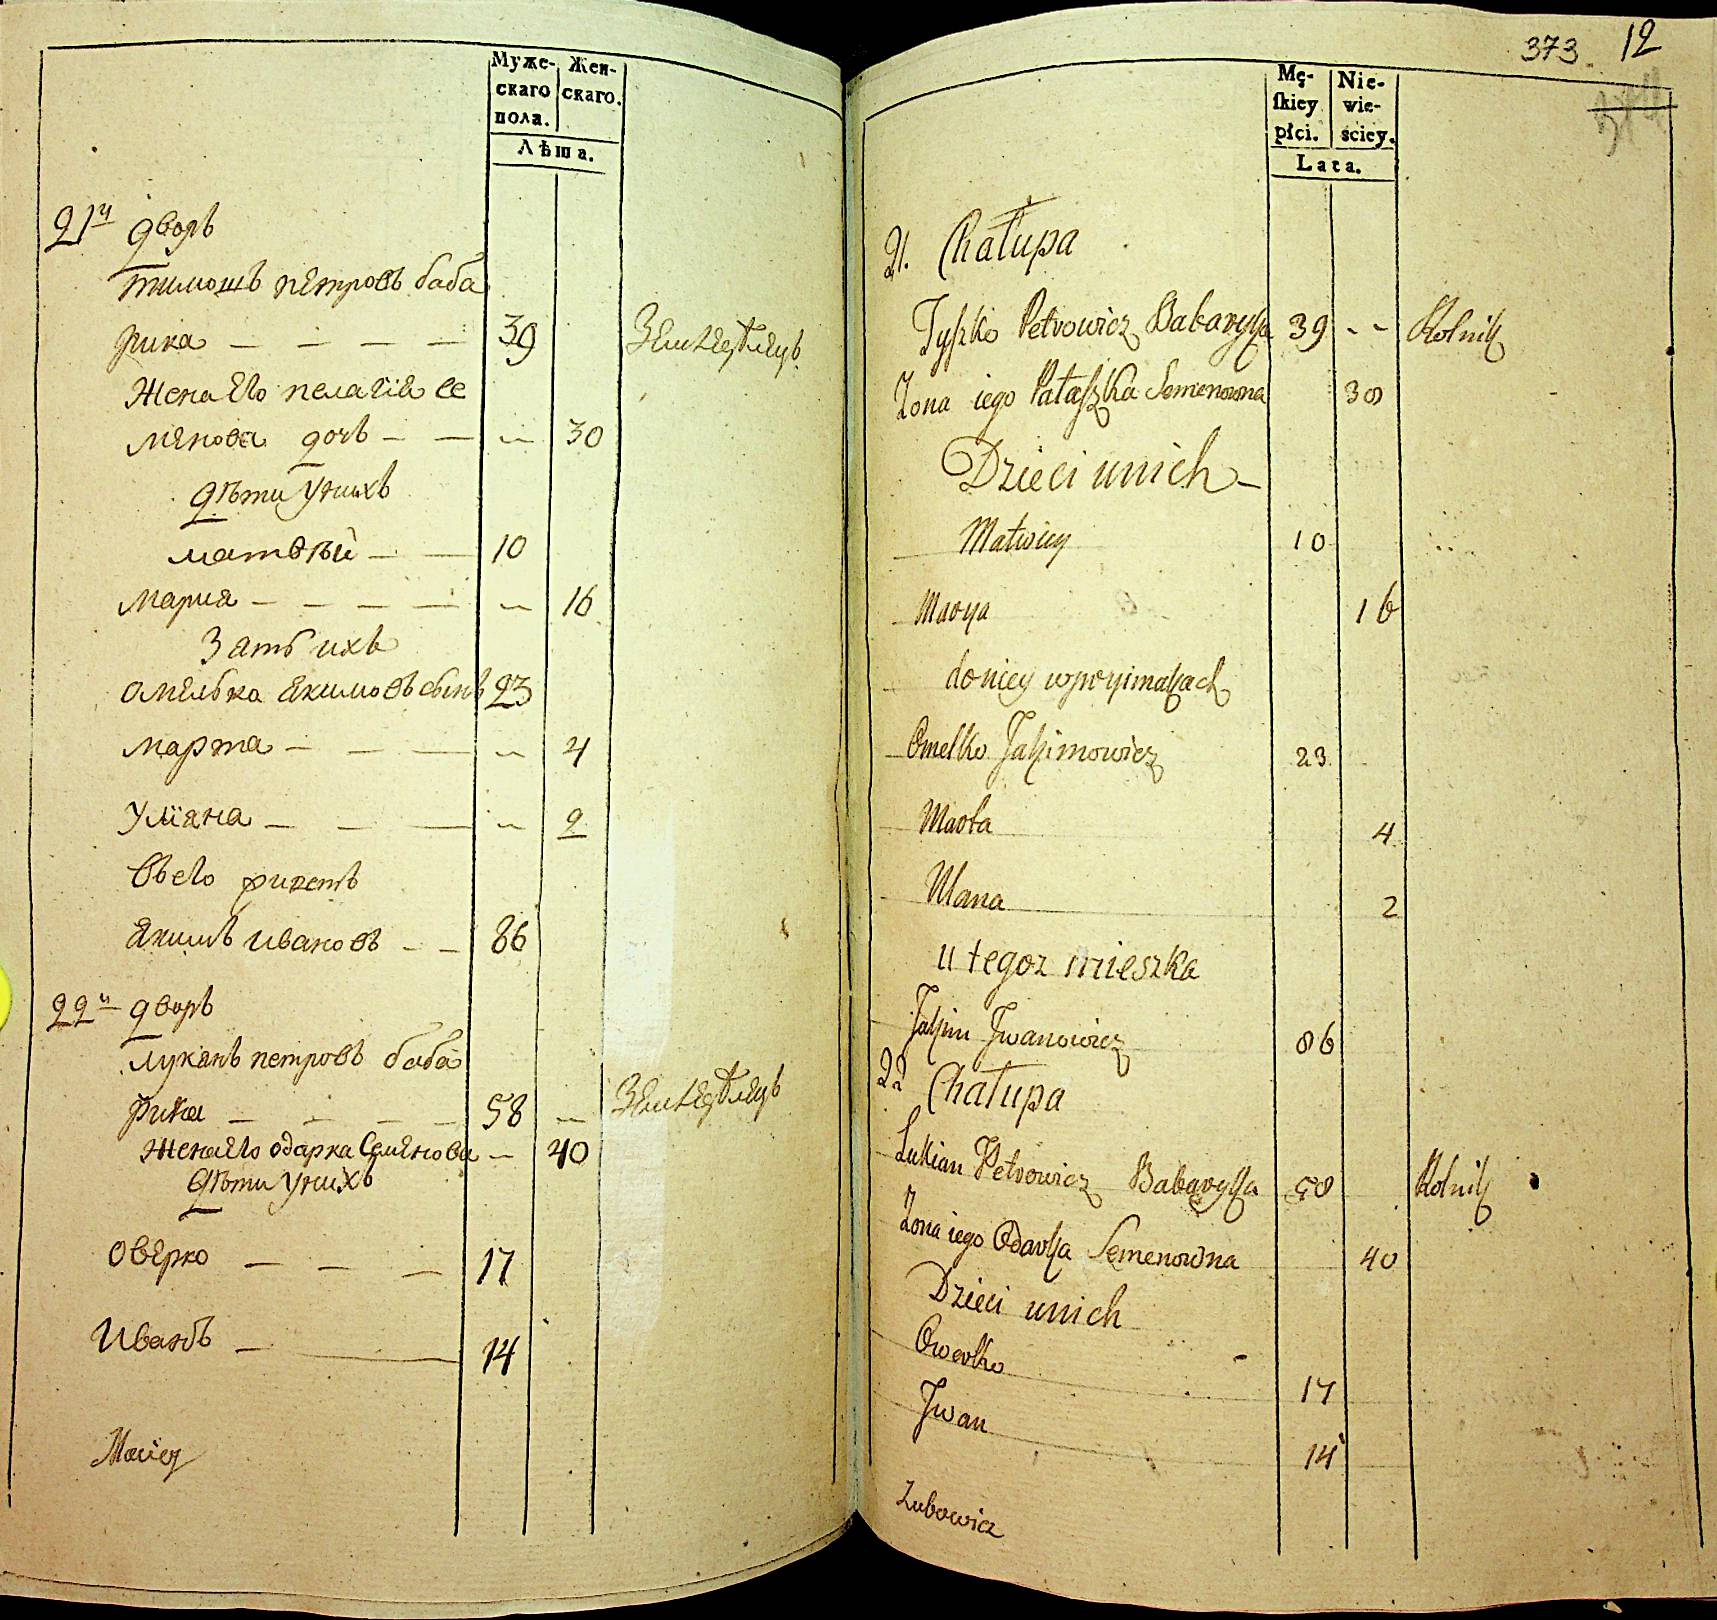 Муже-
скаго
пола.
Жен-
скаго.
Лѣта.
21й дворъ
тимошъ петровъ баба
рика — — — — 39 Земледѣлецъ
Жена его пелагiя се
менова дочь — — — 30
дѣти у нихъ
матвѣй — — 10
Мария — — — — — 16
Зять ихъ
омелька якимовъ сынъ 23
марта — — — — 4
улiяна — — — — 2
Якимъ Ивановъ — — 86
22й дворъ
лукянъ петровъ баба
рика — — — — 58 — Земледѣлецъ
Жена его одарка Семенова — 40
Дѣти у нихъ
оверко — — — 17
Иванъ — — 14
Maciey
373 12
Mę-
skiey
płci.
Nie-
wie-
ściey.
Lata.
21. Chałupa
Tyszko Petrowicz Babaryka 39 - - Rolnik
Zona iego Pałaszka Semenowna 30
Dzieci unich
Matwiey 10
Marya 16
Omelko Jakimowicz 23
Marta 4
Ulana 2
u tegoz mieszka
Jakim Iwanowicz 86
22 Chałupa
Lukian Petrowicz Babaryka 58 Rolnik
Zona iego Odarka Semenowna 40
Dzieci unich
Owerko 17
Iwan 14
Zubowicz